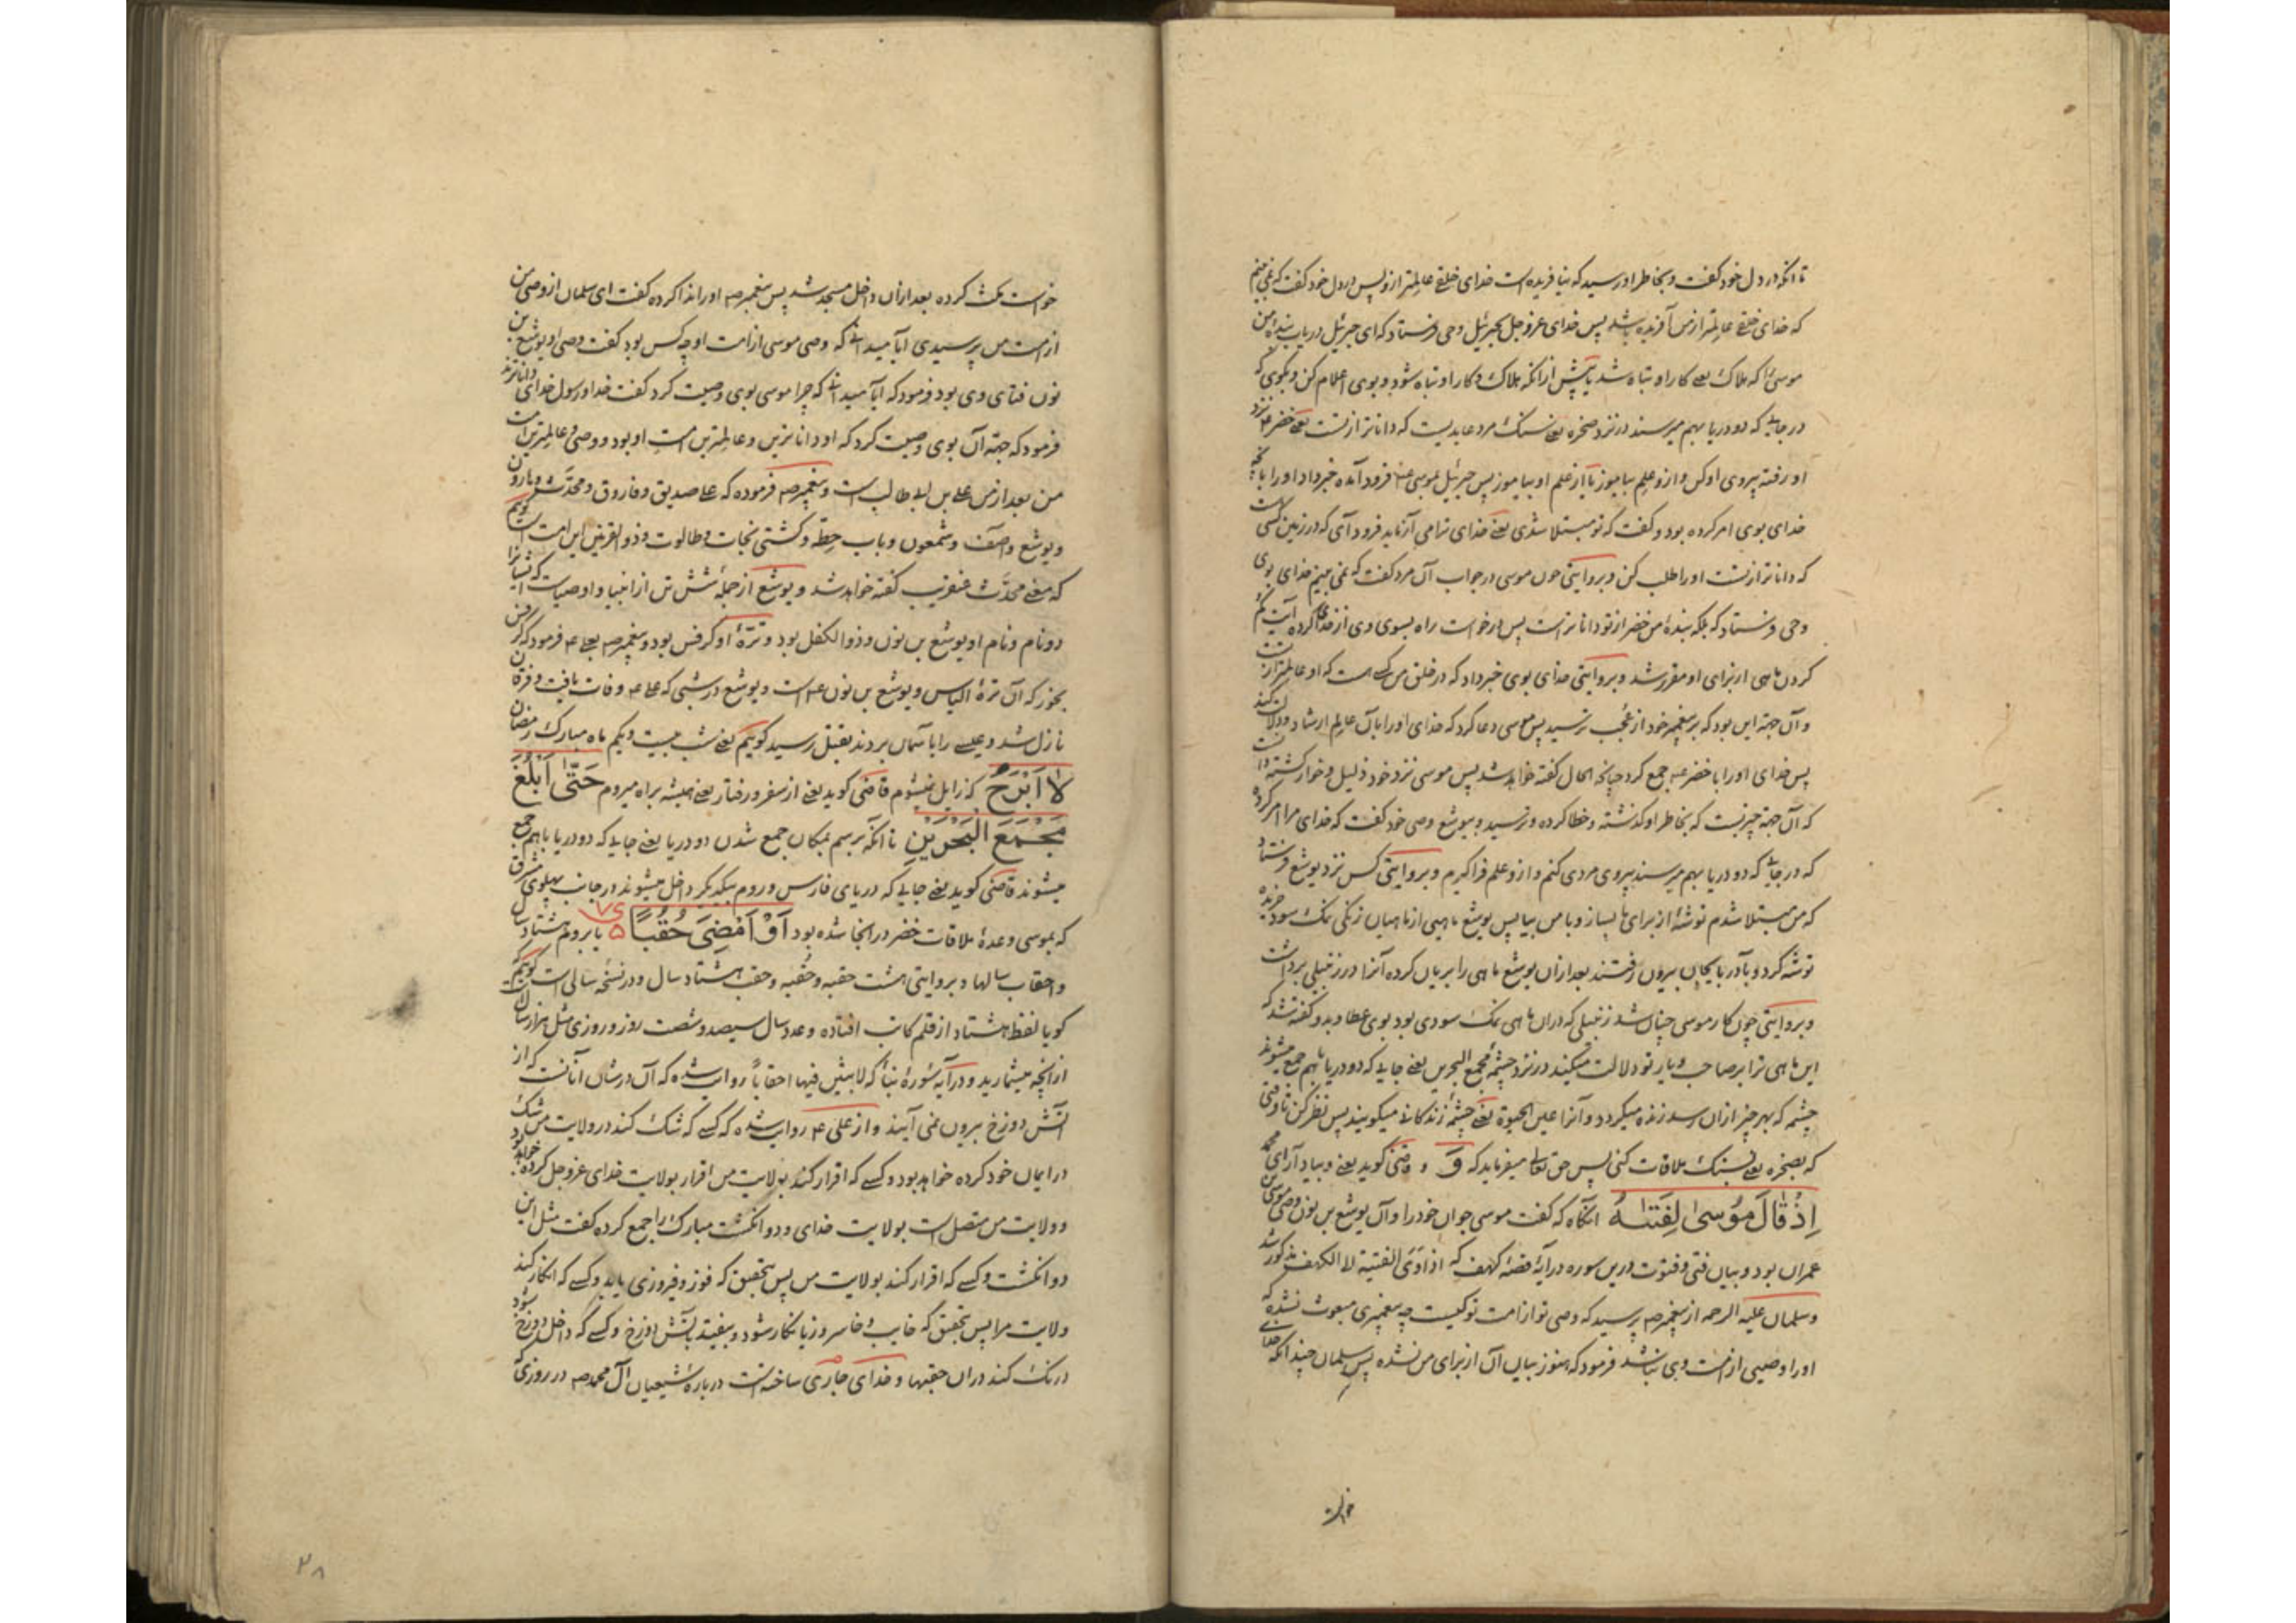 تا انکه در دل خود کفت و بخاطر او رسید که نیافریده است خدای خلقے عالمتر از و پس در دل خود کفت که نمی بینم
که خدای خلقے عالمتر از من آفریده باشد پس خدای عز و جل بجبرئیل وحی فرستاد که ای جبرئیل دریاب بنده من
موسی را که هلاک یعے کار او تباه شد یا پیش از انکه هلاک و کار او تباه شود و بوی اعلام کن و بکوی که
در جایے که دو دریا بهم میرسند در نزد صخره یعے سنک مرد عابدیست که داناتر از تست یعے خضر نزد
او رفته پیروی او کن و از و علم بیاموز تا از علم او بیاموز پس جبرئیل بموسی فرود آمده خبر داد او را بانچه
خدای بوی امر کرده بود و کفت که تو مبتلا شدی یعنے خدای ترا می آزماید فرود آی که در زمین کسی است
که داناتر از تست او را طلب کن و بروایتی چون موسی در جواب آن مرد کفت که نمی بینم خدای بوی
وحی فرستاد که بلکه بندهٔ من خضر از تو داناتر است پس درخواست راه بسوی وی از خدا کرده آیت کم
کردن ماهی از برای او مقرر شد و بروایتی خدای بوی خبر داد که در خلق من کسی هست که او عالمتر از تست
و آن جهة این بود که بر پیغمبر خود از عُجب ترسید پس موسی دعا کرد که خدای او را بآن عالم ارشاد و دلالت کند
پس خدای او را با خضر ع جمع کرد چنانچه الحال کفته خواهد شد پس موسی نزد خود ذلیل و خوار کشته دانست
که آن جهة چیزیست که بخاطر او کذشته و خطا کرده و ترسید و بیوشع وصی خود کفت که خدای مرا امر کرده
که در جایے که دو دریا بهم میرسند پیروی مردی کنم و از و علم فرا کیرم و بروایتی کس نزد یوشع فرستاد
که من مبتلا شدم توشهٔ از برای ما بساز و با من بیا پس یوشع ماهیی از ماهیان زنکی نمک سود خریده
توشه کرد و بآدربایجان بیرون رفتند بعد ازان یوشع ماهی را بریان کرده آنرا در زنبیلی برداشت
و بروایتی چون کار موسی چنان شد زنبیلی که دران ماهی نمک سودی بود بوی عطا و بدو کفته شد که
این ماهی ترا بر صاحب و یار تو دلالت میکند در نزد چشمهٔ مجمع البحرین یعنے جایے که دو دریا با هم جمع میشوند
چشمه که بهر چیز ازان رسد زنده میکردد و آنرا عین الحیوة یعنے چشمهٔ زندکانے میکویند پس نظر کن تا وقتی
که بصخره یعے بسنک ملاقات کنی پس حق تعالے میفرماید که وَ و قاضی کوید یعنے و بیاد آر ای محمد
اِذْ قَالَ مُوسیٰ لِفَتٰهُ انکاه که کفت موسی جوان خود را و آن یوشع بن نون وصی موسی بن
عمران بود و بیان فتی و فتوّت درین سوره در آیهٔ قصهٔ کهف که اذ اَوَی الفتیة الی الکهف مذکور شد
و سلمان علیه الرحمه از پیغمبر صه پرسید که وصی تو از امت تو کیست چه پیغمبری مبعوث نشده که
او را وصیی از امت وی نباشد فرمود که هنوز بیان آن از برای من نشده پس سلمان چندانکه خدای
خواست
خواست مکث کرده بعد ازان داخل مسجد شد پس پیغمبر صه او را ندا کرده کفت ای سلمان از وصی من
از امت من پرسیدی ایا میدانے که وصی موسی از امت او چه کس بود کفت وصی او یوشع بن
نون فتای وی بود فرمود که ایا میدانے که چرا موسی بوی وصیت کرد کفت خدا و رسول خدای داناترند
فرمود که جهة آن بوی وصیت کرد که او داناترین و عالمترین امت او بود و وصی و عالمترین امت
من بعد از من علے بن ابی طالب است و پیغمبر صه فرموده که علے صدیق و فاروق و محدَّث و هارون
و یوشع و آصف و شمعون و باب حِطّه و کشتی نجات و طالوت و ذو القرنین این امت است کویم
که معنے محدَّث عنقریب کفته خواهد شد و یوشع از جملهٔ شش تن از انبیا و اوصیاست که ایشانرا
دو نام و نام او یوشع بن نون و ذو الکفل بود و ترّهٔ او کرفس بود و پیغمبر صه بعلے ع فرمود که کرفس
بخور که آن ترهٔ الیاس و یوشع بن نون ع است و یوشع در شبی که علے ع وفات یافت و فرقان
نازل شد و عیسے را بآسمان بردند بقتل رسید کویم یعنے شب بیست و یکم ماه مبارک رمضان
لا اَبْرَحُ که زایل نمیشوم قاضی کوید یعنے از سفر و رفتار یعنے همیشه براه میروم حَتّٰی اَبْلُغَ
مَجْمَعَ الْبَحْرَیْنِ تا انکه برسم بمکان جمع شدن دو دریا یعنے جایے که دو دریا با هم جمع
میشوند قاضی کوید یعنے جایے که دریای فارس و روم بیکدیکر داخل میشوند در جانب پهلوی مشرق
که بموسی وعدهٔ ملاقات خضر در انجا شده بود اَوْ اَمْضِیَ حُقُباً ۵ یا بروم هشتاد سال
و احقاب سالها و بروایتی هشت حقبه و حُقبه و حقب هشتاد سال و در نسخهٔ سالی است کویم
کویا لفظ هشتاد از قلم کاتب افتاده و عدد سال سیصد و شصت روز و روزی مثل هزار سال
از انچه میشمارید و در آیه سُورهٔ نبأ که لابثین فیها احقاباً روایت شده که آن در شان آنانست که از
آتش دوزخ بیرون نمی آیند و از علی ع روایت شده که کسے که شک کند در ولایت من شک
در ایمان خود کرده خواهد بود و کسے که اقرار کند بولایت من اقرار بولایت خدای عز و جل کرده خواهد بود
و ولایت من متصل است بولایت خدای و دو انکشت مبارک را جمع کرده کفت مثل این
دو انکشت و کسے که اقرار کند بولایت من پس بتحقیق که فوز و فیروزی یابد و کسے که انکار کند
ولایت مرا پس بتحقیق که خایب و خاسر و زیانکار شود و بیفتد بآتش دوزخ و کسے که داخل دوزخ شود
درنک کند دران حقبها و خدای جاری ساخته است دربارهٔ شیعیان آل محمد صه در روزی که
۲۸